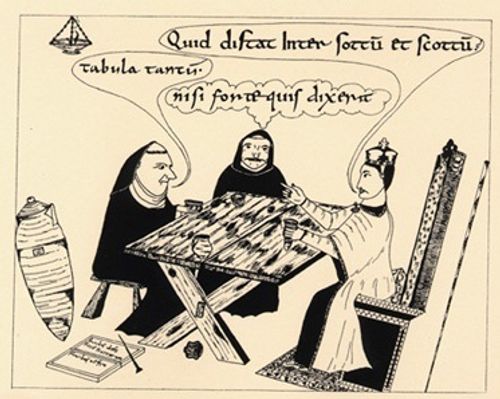 Quid distat Inter sottū et scottū?
tabula tantū.
nisi forte quis dixerit